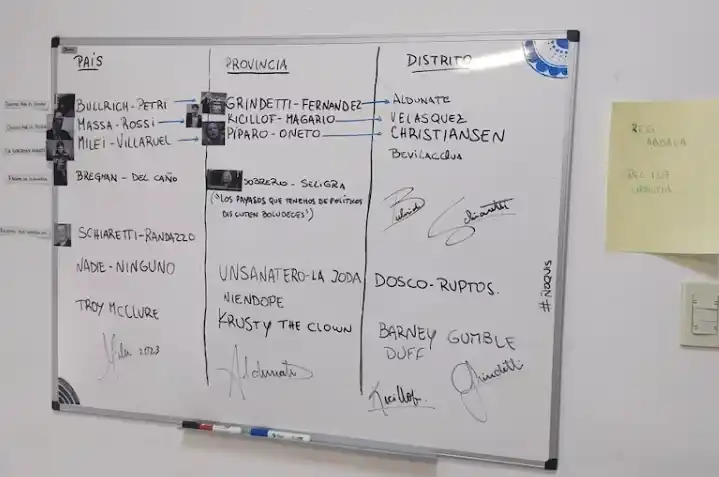 PAÍS
BULLRICH-PETRI
MASSA-ROSSI
MILEI-VILLARUEL
BREGMAN-DEL CAÑO
SCHIARETTI-RANDAZZO
NADIE-NINGUNO
TROY MCCLURE
Milei 2023
PROVINCIA
GRINDETTI-FERNANDEZ
KICILLOF-MAGARIO
PÍPARO-ONETO
SOBRERO-SELIGRA
("LOS PAYASOS QUE TENEMOS DE POLÍTICOS
DISCUTEN BOLUDECES")
UNSANATERO-LA JODA
NIENDOPE
KRUSTY THE CLOWN
Aldunate
DISTRITO
ALDUNATE
VELASQUEZ
CHRISTIANSEN
BEVILACQUA
Bullrich
Schiaretti
DOSCO-RUPTOS.
BARNEY GUMBLE
DUFF
Kicillof
Grindetti
#ÑOQUIS